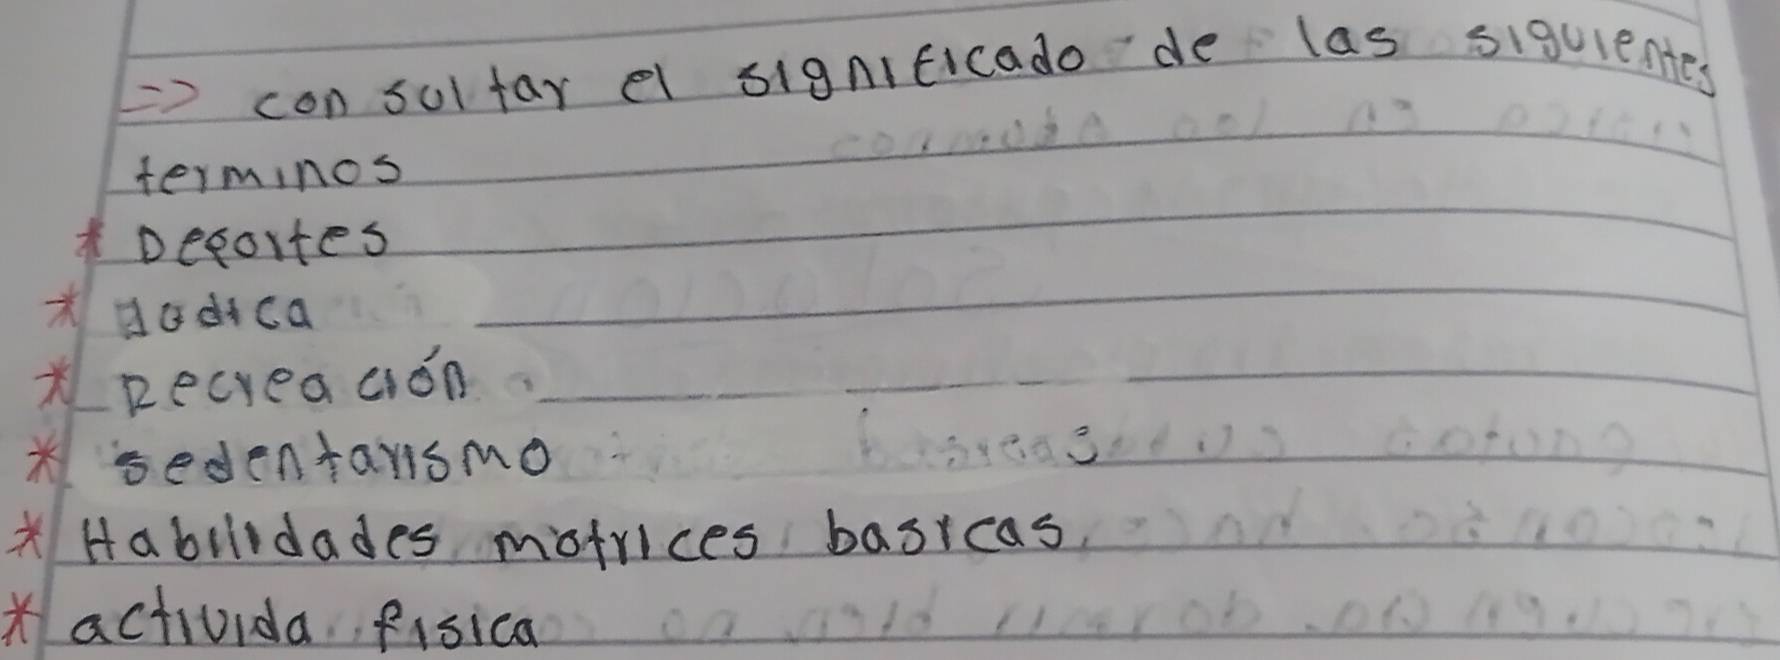 => consultar el significado de las siguientes
terminos
* Deportes
* ludica
* Recreación
* sedentarismo
* Habilidades motrices basicas.
* activida fisica